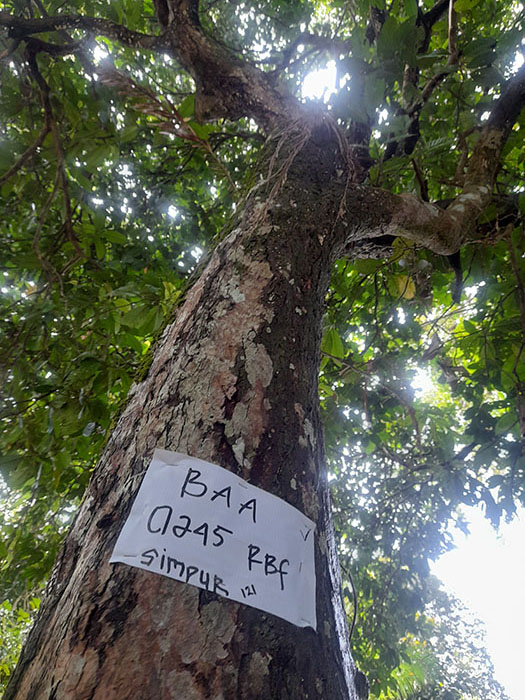 BAA
0245 RBf
simpuR
121